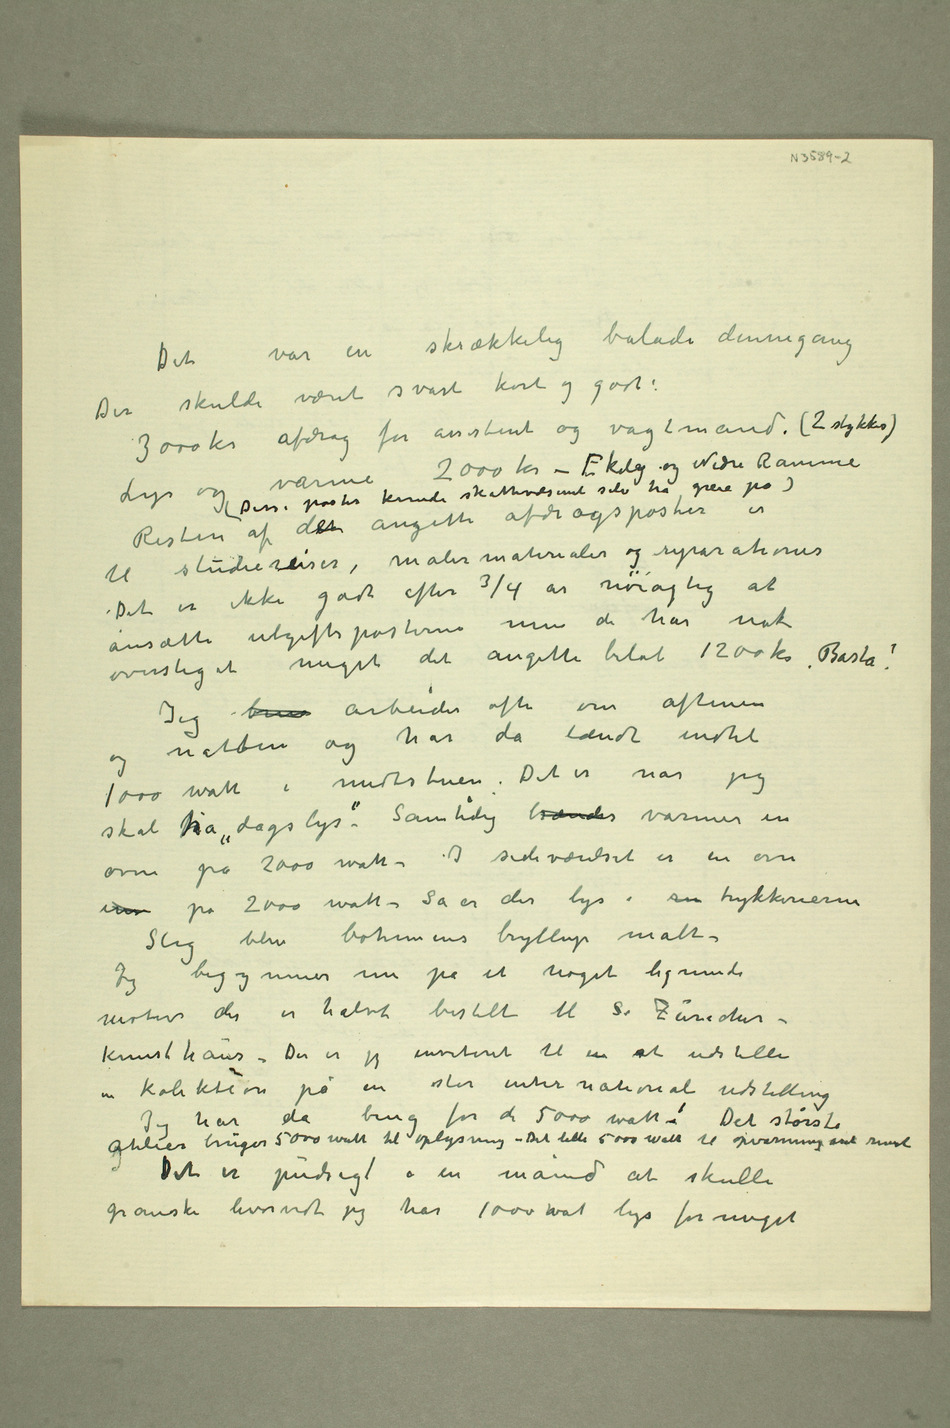 N3589-2
Det var en skrækkelig balade dennegang
Der skulde været svart kort og godt:
3000 kr afdrag for assistent og vagtmand. (2 stykker)
Lys og varme 2000 kr – Ekely og Nedre Ramme
(Disse poster kunde skattevæsenet selv ha greie på)
Resten af det angitte afdragsposter er
til studiereiser, malermaterialer og reparationer
Det er ikke godt efter 3/4 år nöiagtig at
ansætte utgiftsposterne men de har nok
oversteget meget det angitte beløb 1200 kr. Basta!
Jeg arbeider ofte om aftenen
og natten og har da tændt indtil
1000 watt i midtstuen. Det er når jeg
skal ha „dagslys“. Samtidig brænder varmer en
ovn på 2000 watt – I sideværelset er en ovn
på 2000 watt – Så er der lys i trykkerierne
Slig blev bohemens bryllup malt –
Jeg begynner nu på et noget lignende
motiv der er halvt bestilt til Züricher –
Kunsthaus – Der er jeg inviteret til at udstille
en kolektion på en stor international udstilling
Jeg har da brug for de 5000 watt! Det største
athlier bruger 5000 watt til oplysning – Det lille 5000 watt til opvarmning
Det er pudsigt i en måned at skulle
granske hvorvidt jeg har 1000 wat lys for meget